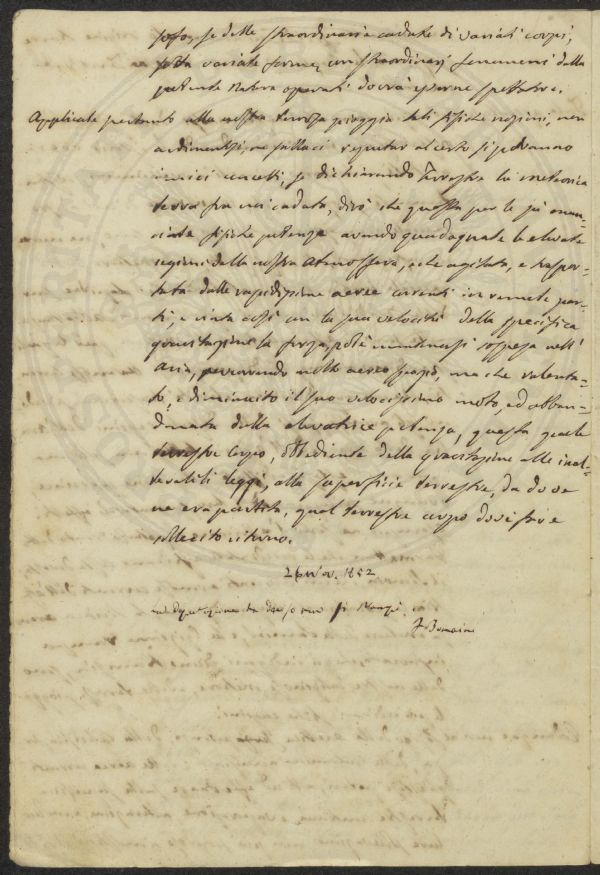 sofo, se delle straordinarie cadute di variati corpi,
sotto variate forme, un straordinarj fenomeni dalla
potente Natura operati dovrà esserne spettatore.
Applicate pertanto alla nostra terrosa pioggia tali fisiche nozioni, non
ardimentosi, ne fallaci reputar al certo si potranno
i miei concetti, se dichiarando terrestre la meteorica
terra fra noi caduta, dirò che questa per le già enun-
ciate fisiche potenze avendo guadagnate le elevate
regioni della nostra atmosfera, che agitata, e traspor-
tata dalle rapidissime aeree correnti in remote par-
ti, e vinta così con la sua velocità della specifica
gravitazione la forza, potè mantenersi sospesa nell'
aria, percorrendo molto aereo spazio, ma che ralenta-
to, e diminuito il suo velocissimo moto, ed abban-
donata dalla elevatrice potenza, questa quale
terrestre corpo, obbediente della gravitazione alle inal-
terabili leggi, alla superficie terrestre, da dove
ne era partita, qual terrestre corpo dovè fare
sollecito ritorno.
26 Nov. 1852